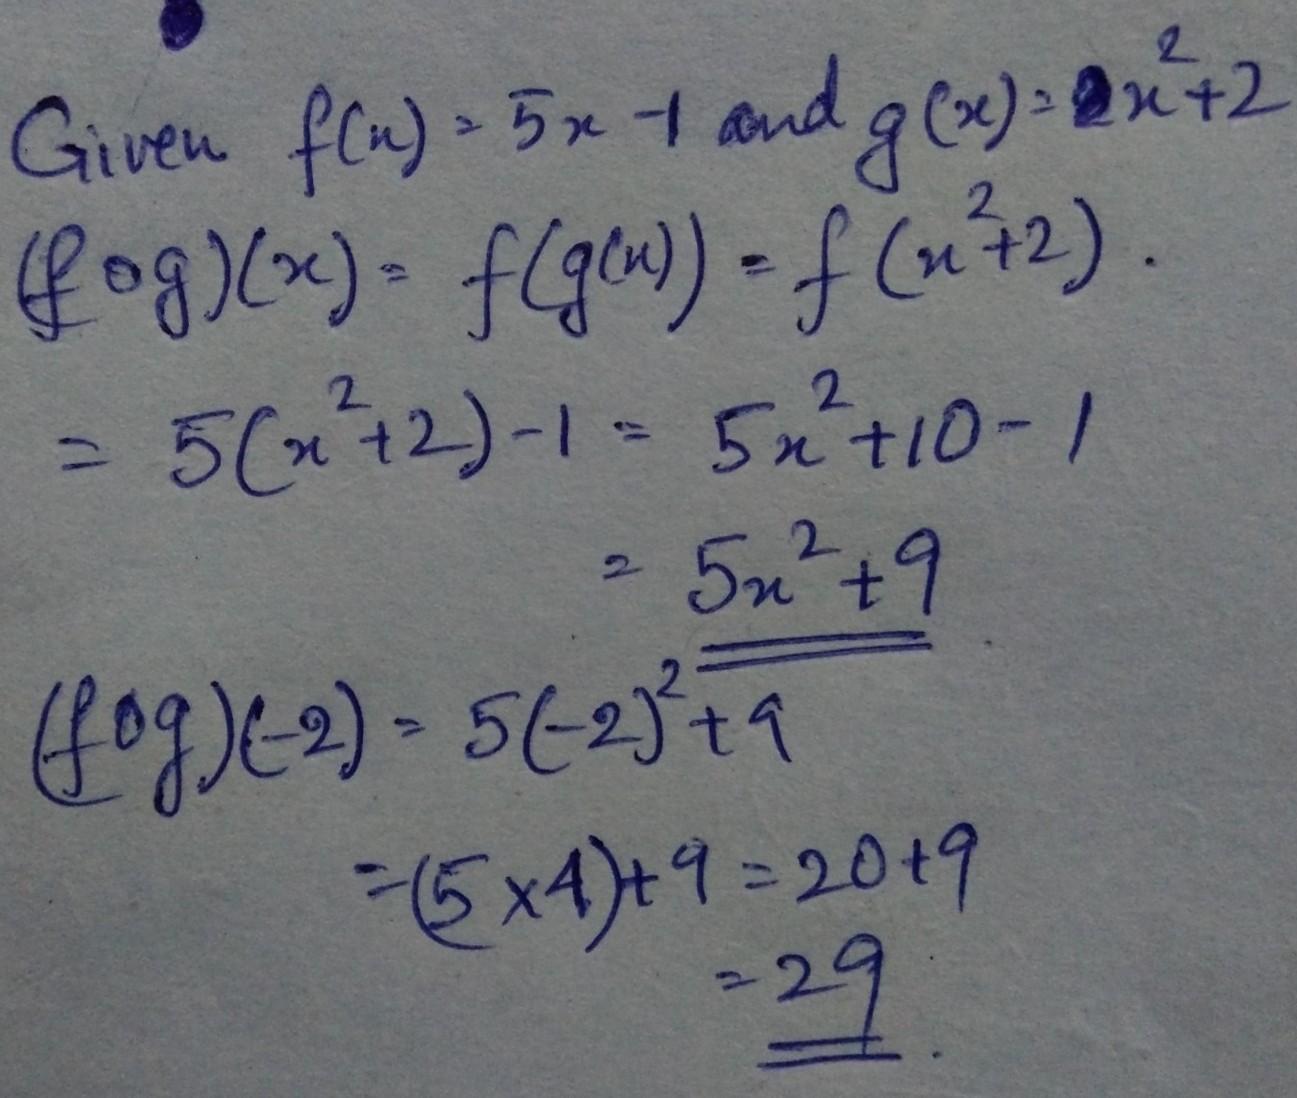 Given f(x) = 5x - 1 and g(x) = x² + 2
(fog)(x) = f(g(x)) = f(x² + 2).
= 5(x² + 2) - 1 = 5x² + 10 - 1
= 5x² + 9
(fog)(-2) = 5(-2)² + 9
= (5 × 4) + 9 = 20 + 9
= 29.